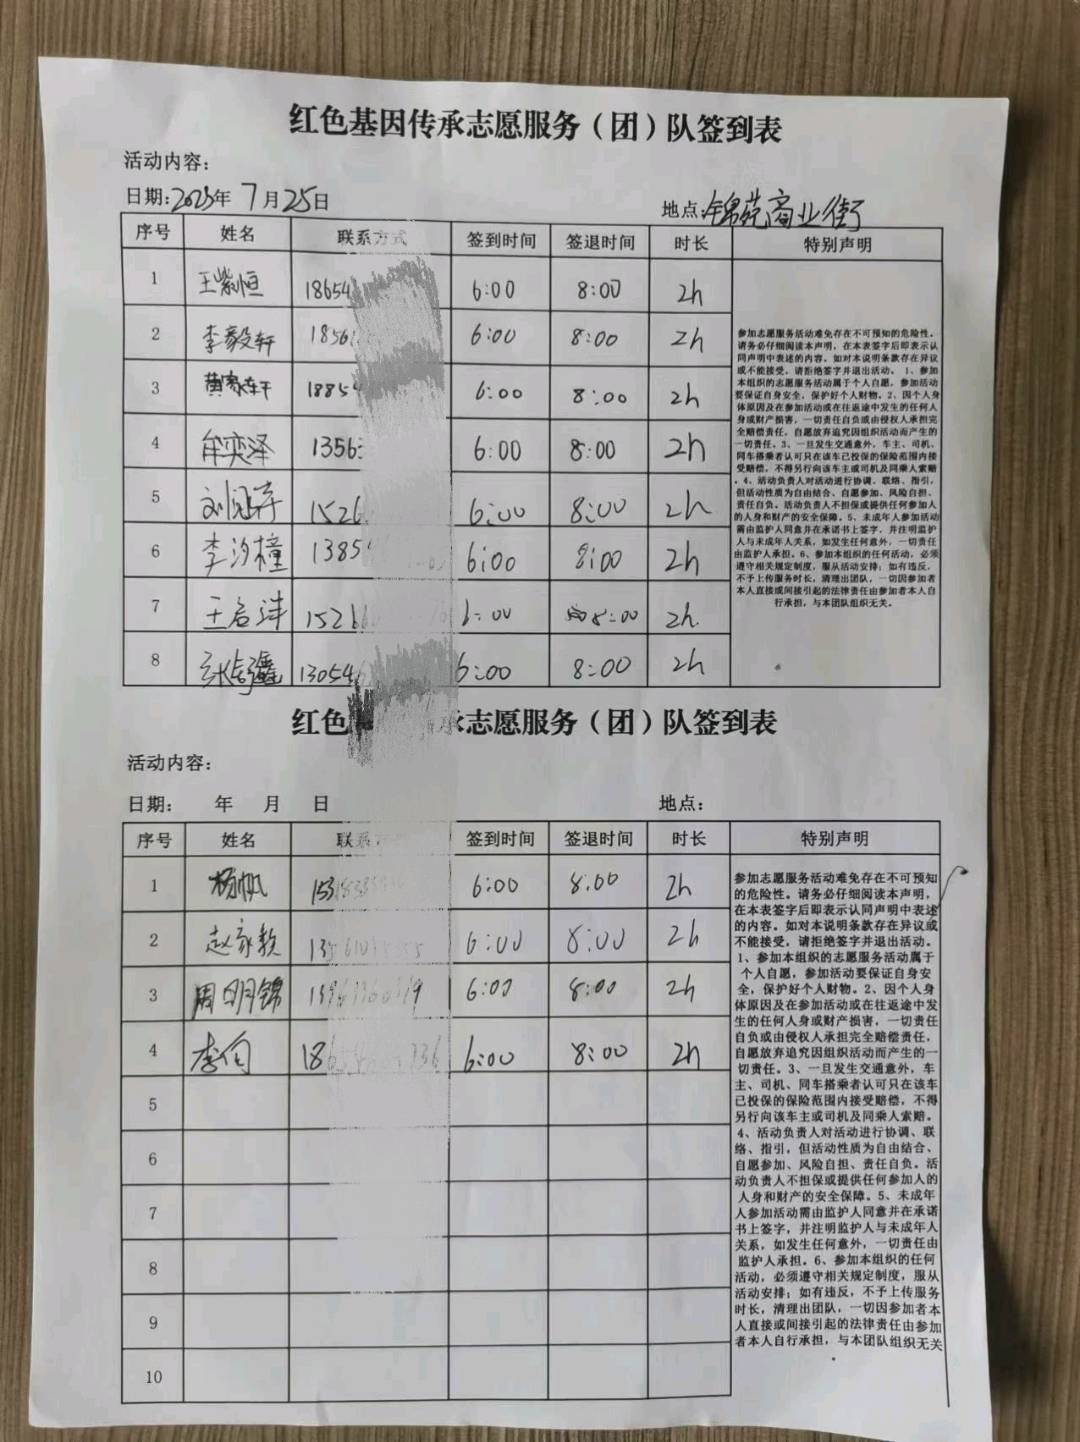 红色基因传承志愿服务（团）队签到表
活动内容：
日期：2025年 7月25日 地点：锦苑商业街
序号 姓名 联系方式 签到时间 签退时间 时长 特别声明
1 王紫恒 18654 6:00 8:00 2h
2 李毅轩 1856 6:00 8:00 2h
3 黄家轩 18854 6:00 8:00 2h
4 牟奕泽 13563 6:00 8:00 2h
5 1526 6:00 8:00 2h
6 李汐橦 1385 6:00 8:00 2h
7 1526 6:00 8:00 2h
8 13054 6:00 8:00 2h
参加志愿服务活动难免存在不可预知的危险性。
请务必仔细阅读本声明，在本表签字后即表示认
同声明中表述的内容。如对本说明条款存在异议
或不能接受，请拒绝签字并退出活动。 1、参加
本组织的志愿服务活动属于个人自愿，参加活动
要保证自身安全，保护好个人财物。2、因个人身
体原因及在参加活动或在往返途中发生的任何人
身或财产损害，一切责任自负或由侵权人承担完
全赔偿责任，自愿放弃追究因组织活动而产生的
一切责任。3、一旦发生交通意外，车主、司机、
同车搭乘者认可只在该车已投保的保险范围内接
受赔偿，不得另行向该车主或司机及同乘人索赔
。4、活动负责人对活动进行协调、联络、指引，
但活动性质为自由结合、自愿参加、风险自担、
责任自负。活动负责人不担保或提供任何参加人
的人身和财产的安全保障。5、未成年人参加活动
需由监护人同意并在承诺书上签字，并注明监护
人与未成年人关系，如发生任何意外，一切责任
由监护人承担。6、参加本组织的任何活动，必须
遵守相关规定制度，服从活动安排；如有违反，
不予上传服务时长，清理出团队，一切因参加者
本人直接或间接引起的法律责任由参加者本人自
行承担，与本团队组织无关。
红色 承志愿服务（团）队签到表
活动内容：
日期： 年 月 日 地点：
序号 姓名 联系方 签到时间 签退时间 时长 特别声明
1 杨帆 153 6:00 8:00 2h
2 赵家毅 13 6:00 8:00 2h
3 周明锦 6:00 8:00 2h
4 李昀 186 6:00 8:00 2h
5
6
7
8
9
10
参加志愿服务活动难免存在不可预知
的危险性。请务必仔细阅读本声明，
在本表签字后即表示认同声明中表述
的内容。如对本说明条款存在异议或
不能接受，请拒绝签字并退出活动。
1、参加本组织的志愿服务活动属于
个人自愿，参加活动要保证自身安
全，保护好个人财物。2、因个人身
体原因及在参加活动或在往返途中发
生的任何人身或财产损害，一切责任
自负或由侵权人承担完全赔偿责任，
自愿放弃追究因组织活动而产生的一
切责任。3、一旦发生交通意外，车
主、司机、同车搭乘者认可只在该车
已投保的保险范围内接受赔偿，不得
另行向该车主或司机及同乘人索赔。
4、活动负责人对活动进行协调、联
络、指引，但活动性质为自由结合、
自愿参加、风险自担、责任自负。活
动负责人不担保或提供任何参加人的
人身和财产的安全保障。5、未成年
人参加活动需由监护人同意并在承诺
书上签字，并注明监护人与未成年人
关系，如发生任何意外，一切责任由
监护人承担。6、参加本组织的任何
活动，必须遵守相关规定制度，服从
活动安排；如有违反，不予上传服务
时长，清理出团队，一切因参加者本
人直接或间接引起的法律责任由参加
者本人自行承担，与本团队组织无关